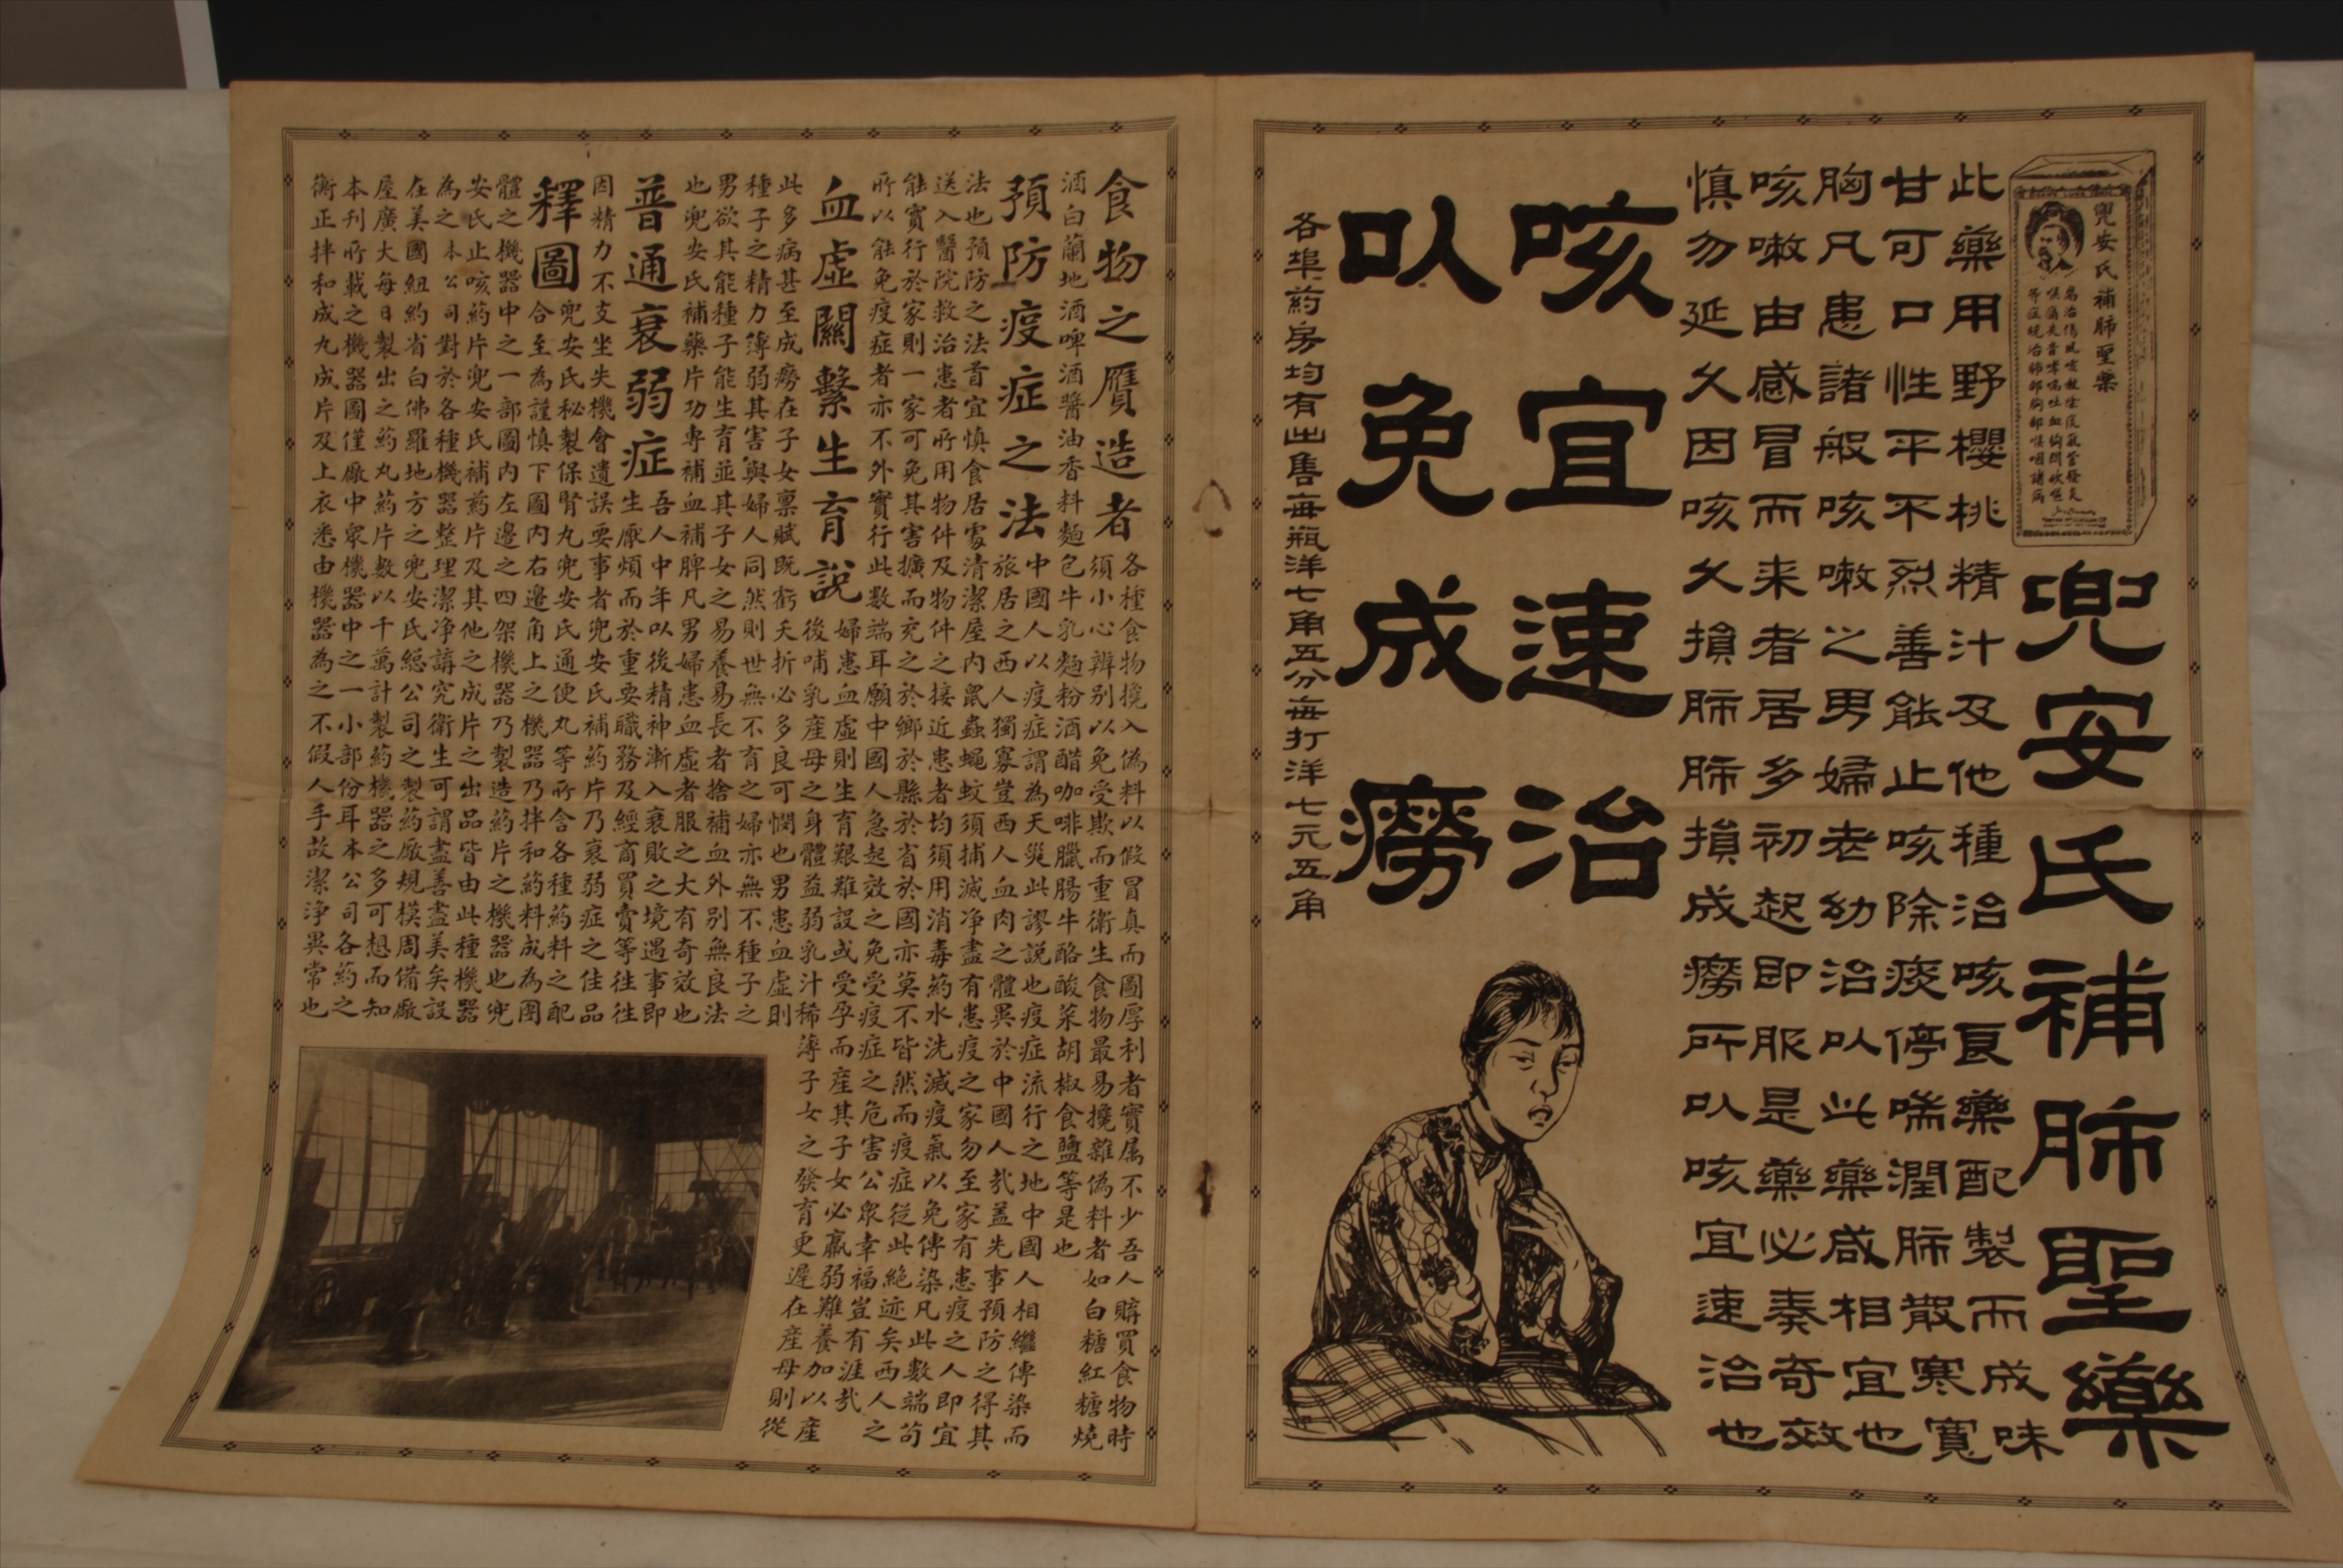 兜安氏補肺聖藥
為治傷風咳嗽除痰氣管發炎
喉痛失音哮喘吐血胸悶欬嗆
等症統治肺部胸部喉咽諸病
兜安氏補肺聖藥
此藥用野櫻桃精汁及他種治咳良藥配製而成味
甘可口性平不烈善能止咳除痰停喘潤肺散寒寬
胸凡患諸般咳嗽之男婦老幼治以此藥咸相宜也
咳嗽由感冒而来者居多初起即服是藥必奏奇效
慎勿延久因咳久損肺肺損成癆所以咳宜速治也
咳宜速治
以免成癆
各埠药房均有出售每瓶洋七角五分每打洋七元五角
食物之贋造者
各種食物攙入偽料以假冒真而圖厚利者實属不少吾人購買食物時
須小心辨別以免受欺而重衛生食物最易攙雜偽料者如白糖紅糖燒
酒白蘭地酒啤酒醬油香料麵包牛乳麵粉酒醋咖啡臘腸牛酪酸菜胡椒食鹽等是也
預防疫症之法
中國人以疫症謂為天災此謬説也疫症流行之地中國人相繼傳染而
旅居之西人獨寡豈西人血肉之體異於中國人㢤盖先事預防之得其
法也預防之法首宜慎食居處清潔屋內鼠蟲蠅蚊須捕滅净盡有患疫之家勿至家有患疫之人即宜
送入醫院救治患者所用物件及物件之接近患者均須用消毒药水洗滅疫氣以免傳染凡此數端苟
能實行於家則一家可免其害擴而充之於鄉於縣於省於國亦莫不皆然而疫症從此絶迹矣西人之
所以能免疫症者亦不外實行此數端耳願中國人急起效之免受疫症之危害公眾幸福豈有涯㢤
血虛關繫生育說
婦患血虛則生育艱難設或受孕而産其子女必羸弱難養加以産
後哺乳産母之身體益弱乳汁稀薄子女之發育更遲在産母則從
此多病甚至成癆在子女禀賦既虧夭折必多良可憫也男患血虛則
種子之精力薄弱其害與婦人同然則世無不育之婦亦無不種子之
男欲其能種子能生育並其子女之易養易長者捨補血外別無良法
也兜安氏補藥片功専補血補脾凡男婦患血虛者服之大有奇效也
普通衰弱症
吾人中年以後精神漸入衰敗之境遇事即
生厭煩而於重要職務及經商買賣等往往
因精力不支坐失機會遺誤要事者兜安氏補药片乃衰弱症之佳品
釋圖
兜安氏秘製保腎丸兜安氏通便丸等所含各種药料之配
合至為謹慎下圖內右邊角上之機器乃拌和药料成為團
體之機器中之一部圖内左邊之四架機器乃製造药片之機器也兜
安氏止咳药片兜安氏補药片及其他之成片之出品皆由此種機器
為之本公司對於各種機器整理潔净講究衛生可謂盡善盡美矣設
在美國紐約省白佛羅地方之兜安氏總公司之製药廠規模周備廠
屋廣大每日製出之药丸药片數以千萬計製药機器之多可想而知
本刊所載之機器圖僅廠中眾機器中之一小部份耳本公司各药之
衡正拌和成丸成片及上衣悉由機器為之不假人手故潔净異常也